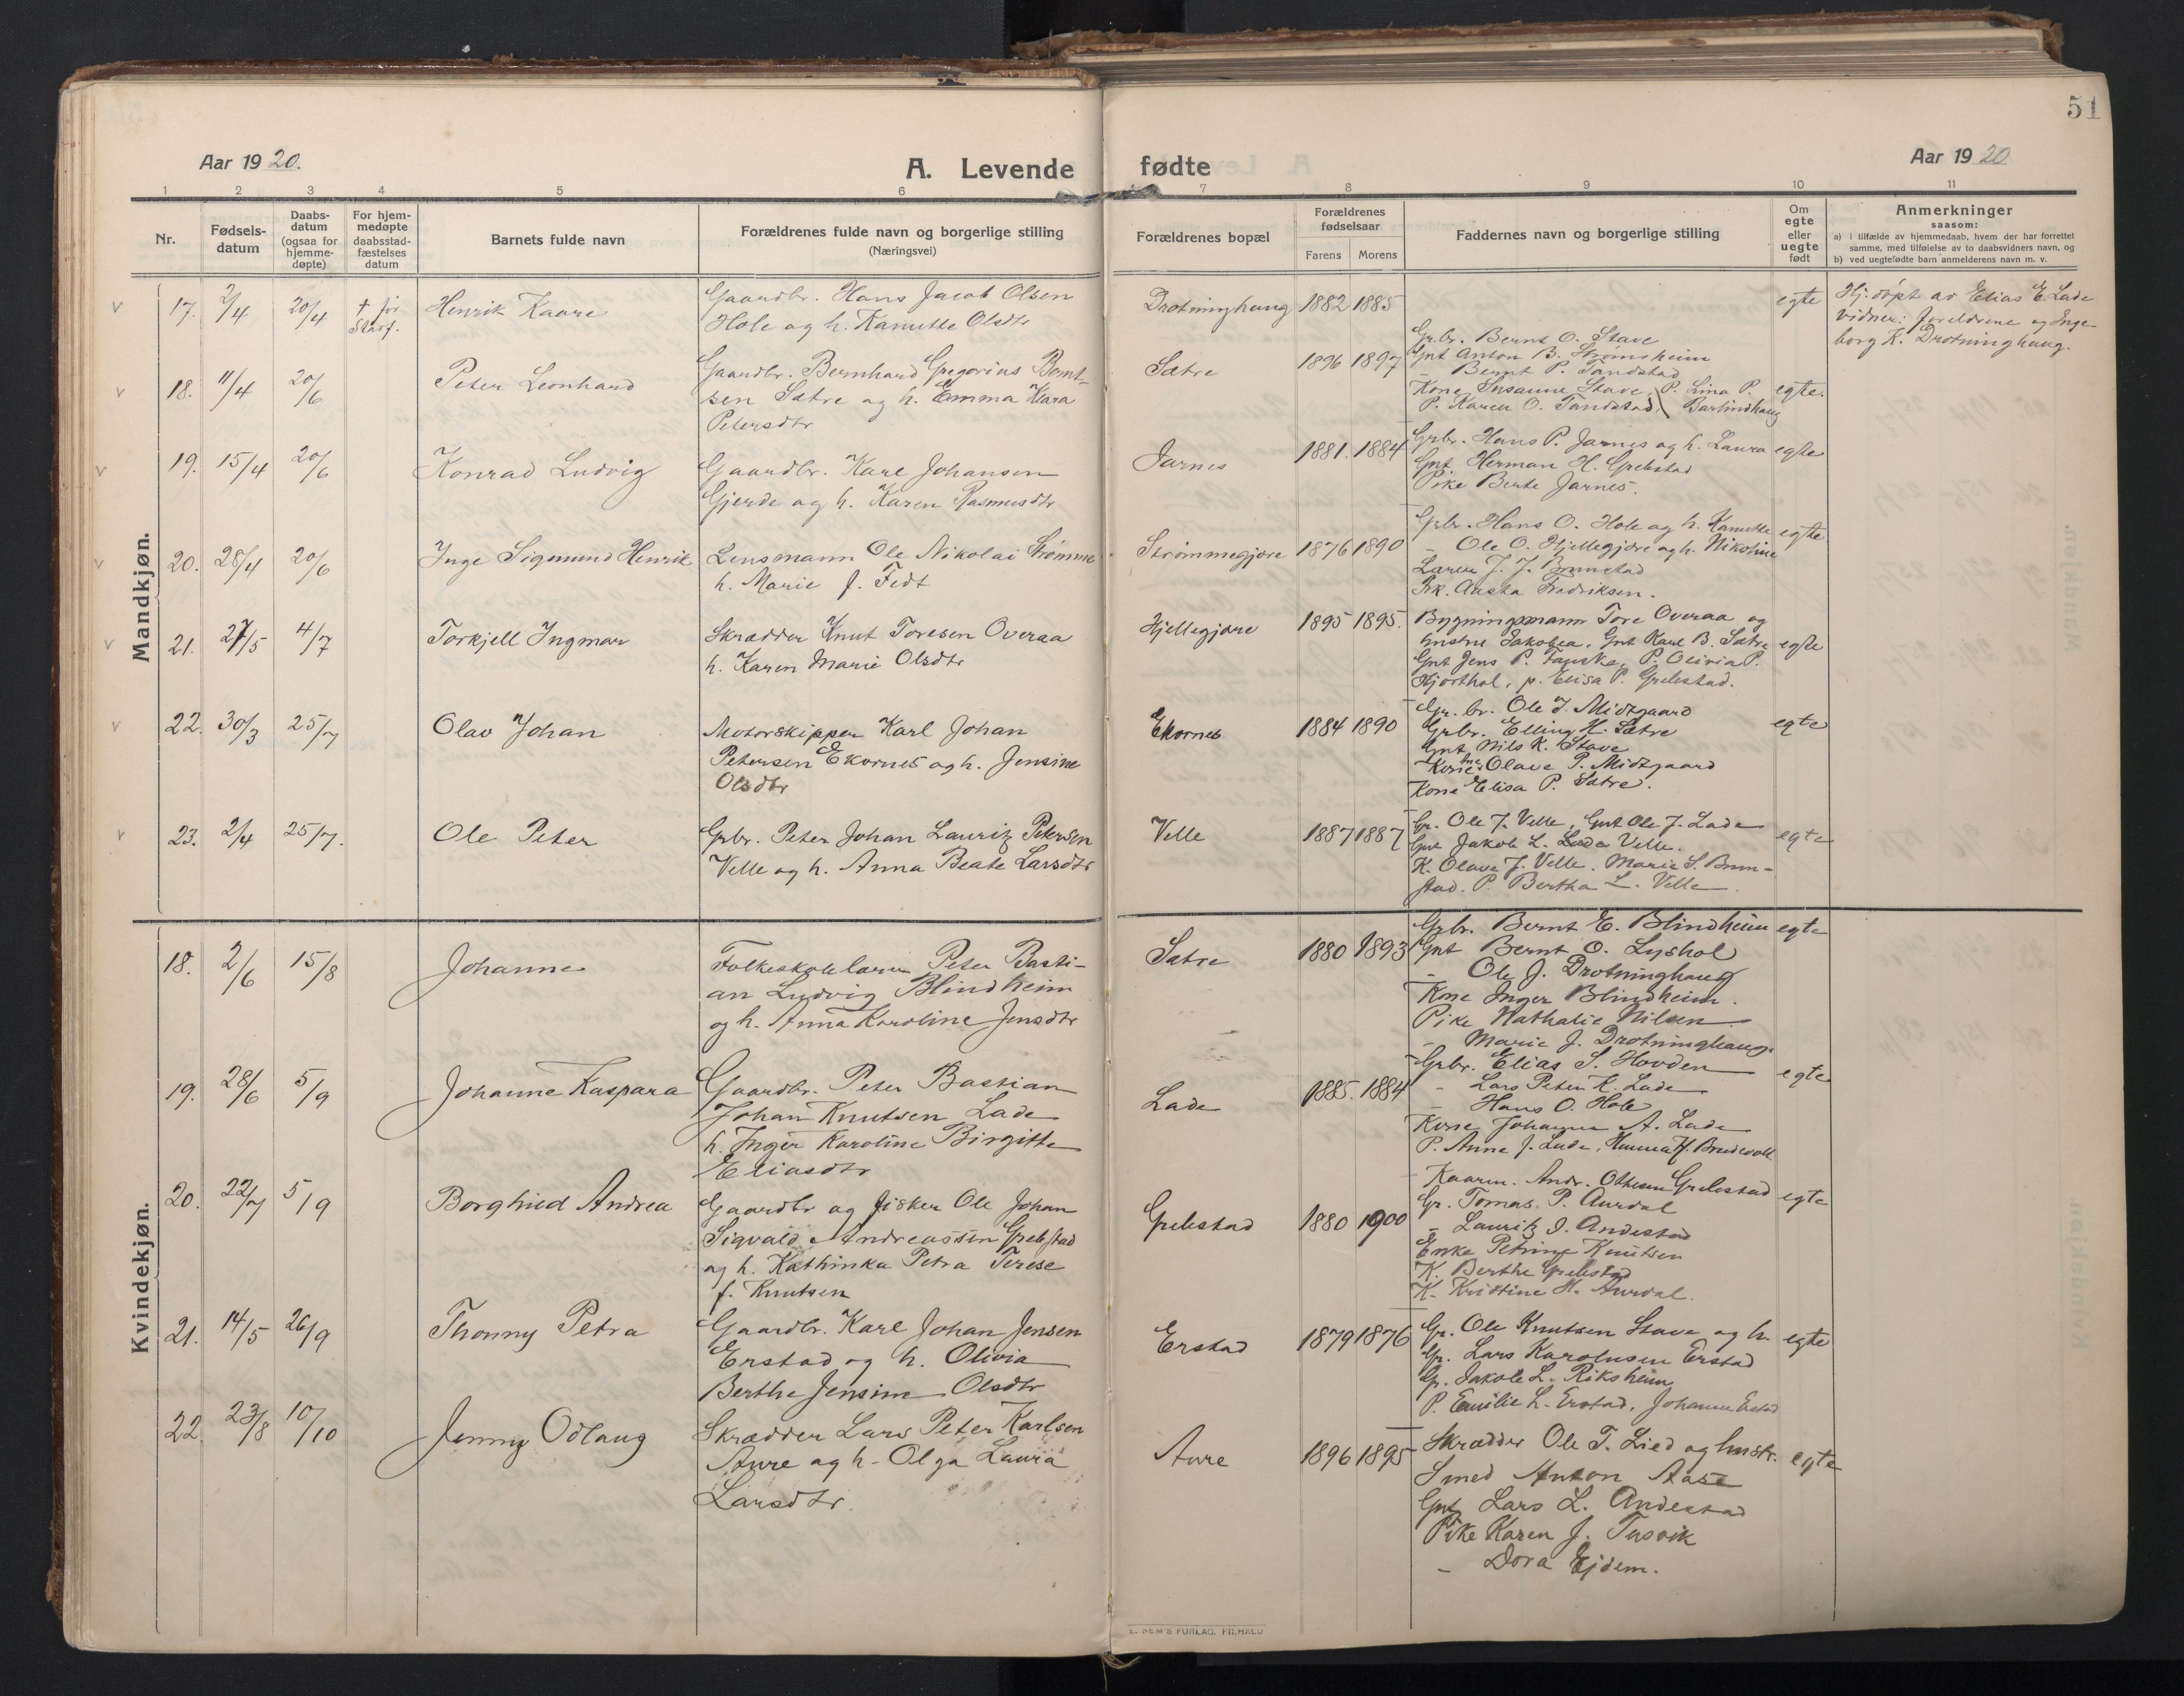 51
Aar 1920.
A. Levende fødte
Aar 1920
1 2 3 4 5 6 7 8 9 10 11
Nr.
Fødsels-
datum
Daabs-
datum
(ogsaa for
hjemme-
døpte)
For hjem-
medøpte
daabsstad-
fæstelses
datum
Barnets fulde navn
Forældrenes fulde navn og borgerlige stilling
(Næringsvei)
Forældrenes bopæl
Forældrenes
fødselsaar
Farens Morens
Faddernes navn og borgerlige stilling
Om
egte
eller
uegte
født
Anmerkninger
saasom:
a) i tilfælde av hjemmedaab, hvem der har forrettet
samme, med tilføielse av to daabsvidners navn, og
b) ved uegtefødte barn anmelderens navn m. v.
Mandkjøn.
17. 2/4 20/4 † før
Staf.
Henrik Kaare
Gaardbr. Hans Jacob Olsen
Hole og h. Kanutte Olsdtr
Drotninghaug 1882 1885
egte
Hj. døpt av Elias E. Lade
vidner: foreldrene og Inge-
borg K. Drotninghaug.
18. 11/4 20/6
Peter Leonhard
Gaardbr. Bernhard Gregorius Bernt-
sen Sætre og h. Emma Klara
Petersdtr
Sætre 1896 1897
Grbr. Bernt O. Stave
Gut Anton B. Strømsheim
– Bernt P. Tandstad
Kone Susanne Stave, P. Lina P.
P. Karen O. Tandstad, Barlindhaug
egte.
19. 15/4 20/6
Konrad Ludvig
Gaardbr. Karl Johansen
Gjerde og h. Karen Rasmusdtr
Jarnes 1881. 1884
Grbr. Hans P. Jarnes og h. Laura
Gut Herman H. Grebstad
Pike Berte Jarnes.
egte
20. 28/4 20/6
Inge Sigmund Henrik
Lensmann Ole Nikolai Strømme
h. Marie f. Fedt
Strømmegjære 1876 1890
Grbr. Hans O. Hole og h. Kanutte
– Ole O. Hjellegjære og h. Nikoline
Lærer J. J. Brunstad
Frk. Aasta Fredriksen.
egte
21. 27/5 4/7
Torkjell Ingmar
Skrædder Knut Toresen Overaa
h. Karen Marie Olsdtr
Hjellegjære 1895 1895.
Bygningsmann Tore Overaa og
hustru Jakobea, Gut Karl B. Sætre
Gut Jens P. Fauske, P. Olivia P.
Hjorthol, p. Elisa P. Grebstad.
egte
22. 30/3 25/7
Olav Johan
Motorskipper Karl Johan
Petersen Ekornes og h. Jensine
Olsdtr
Ekornes 1884 1890
Gr. br. Ole J. Midtgaard
Grbr. Elling H. Sætre
Gut Nils K. Stave
Kone Olave P. Midtgaard
Kone Elisa P. Sætre.
egte
23. 2/4 25/7.
Ole Peter
Grbr. Peter Johan Lauritz Petersen
Velle og h. Anna Beate Larsdtr
Velle 1887 1887
Gr. Ole J. Velle, Gut Ole J. Lade
Gut Jakob L. Lade Velle.
K. Olave J. Velle, Marie S. Brun-
stad. P. Bertha L. Velle.
egte
Kvindekjøn.
18. 2/6 15/8
Johanne
Folkeskolelærer Peter Basti-
an Ludvig Blindheim
og h. Anna Karoline Jensdtr
Sætre 1880 1893
Grbr. Bernt E. Blindheim
Gut Bernt O. Lyshol
– Ole J. Drotninghaug
Kone Inger Blindheim.
Pike Nathalie Nilsen
– Marie J. Drotninghaug.
egte
19. 28/6 5/9
Johanne Kaspara
Gaardbr. Peter Bastian
Johan Knutsen Lade
h. Inger Karoline Birgitte
Eliasdtr
Lade 1885. 1884
Grbr. Elias S. Hovden
– Lars Peter K. Lade
– Hans O. Hole
Kone Johanne A. Lade
P. Anne J. Lade, H. Brudevoll.
egte
20. 22/7 5/9
Borghild Andrea
Gaardbr og fisker Ole Johan
Sigvald Andreassen Grebstad
og h. Kathinka Petra Terese
f. Knutsen
Grebstad 1880 1900
Kaarm. Andr. Othesen Grebstad
Gr. Tomas P. Aurdal
– Lauritz J. Andestad
Enke Petrine Knutsen
K. Berthe Grebstad
K. Kristine H. Aurdal.
egte
21. 14/5 26/9
Thonny Petra
Gaardbr. Karl Johan Jensen
Erstad og h. Olivia
Berthe Jensine Olsdtr
Erstad 1879 1876
Gr. Ole Knutsen Stave og h.
Gr. Lars Karolusen Erstad
Gr. Jakob L. Riksheim
P. Emilie L. Erstad, Johanne Erstad
egte
22. 23/8 10/10
Jenny Odlaug
Skrædder Lars Peter Karlsen
Aure og h. Olga Laura
Larsdtr.
Aure 1896 1895
Skrædder Ole T. Lied og hustr.
Smed Anton Aase
Gut Lars L. Andestad
Pike Karen J. Tusvik
– Dora Ejdem.
egte
E. SEM'S FORLAG, FR.HALD